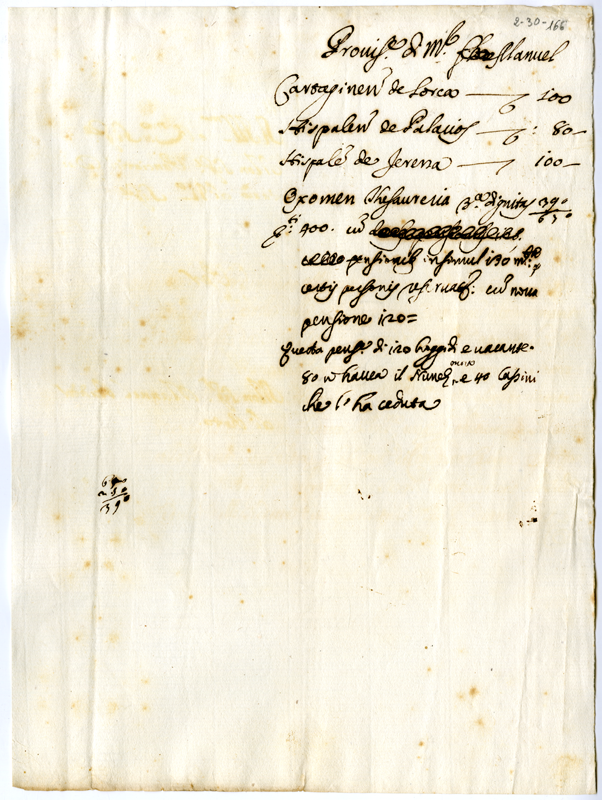 2-30-166
Provis.e di M.r Manuel
Cartaginen de Lorca 100
Hispalen de Palacios : 80
Hispale de Jerena 100
Oxomen Thesaureria 3.a dignitas 390
63
400. cu
pensionib insimul 130
certis personis reservat: cu nova
pensione 120=
Questa pens.e di 120 hoggidi e vacante.
80 n havea il Nunez e 40 Cassini
che l'ha ceduta
390